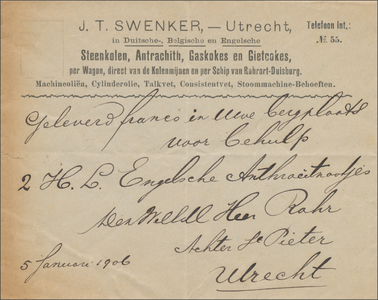 J. T. SWENKER, — Utrecht,
Telefoon Int.:
№ 55.
in Duitsche-, Belgische en Engelsche
Steenkolen, Antrachith, Gaskokes en Gietcokes,
per Wagon, direct van de Kolenmijnen en per Schip van Ruhrort-Duisburg.
Machineoliën, Cylinderolie, Talkvet, Consistentvet, Stoommachine-Behoeften.
Geleverd franco in Uwe bergplaats
voor behulp
2 H. L. Engelsche Anthracietnootjes
Den WelEd. Heer Rahr
Achter St Pieter
5 Januari 1906
Utrecht